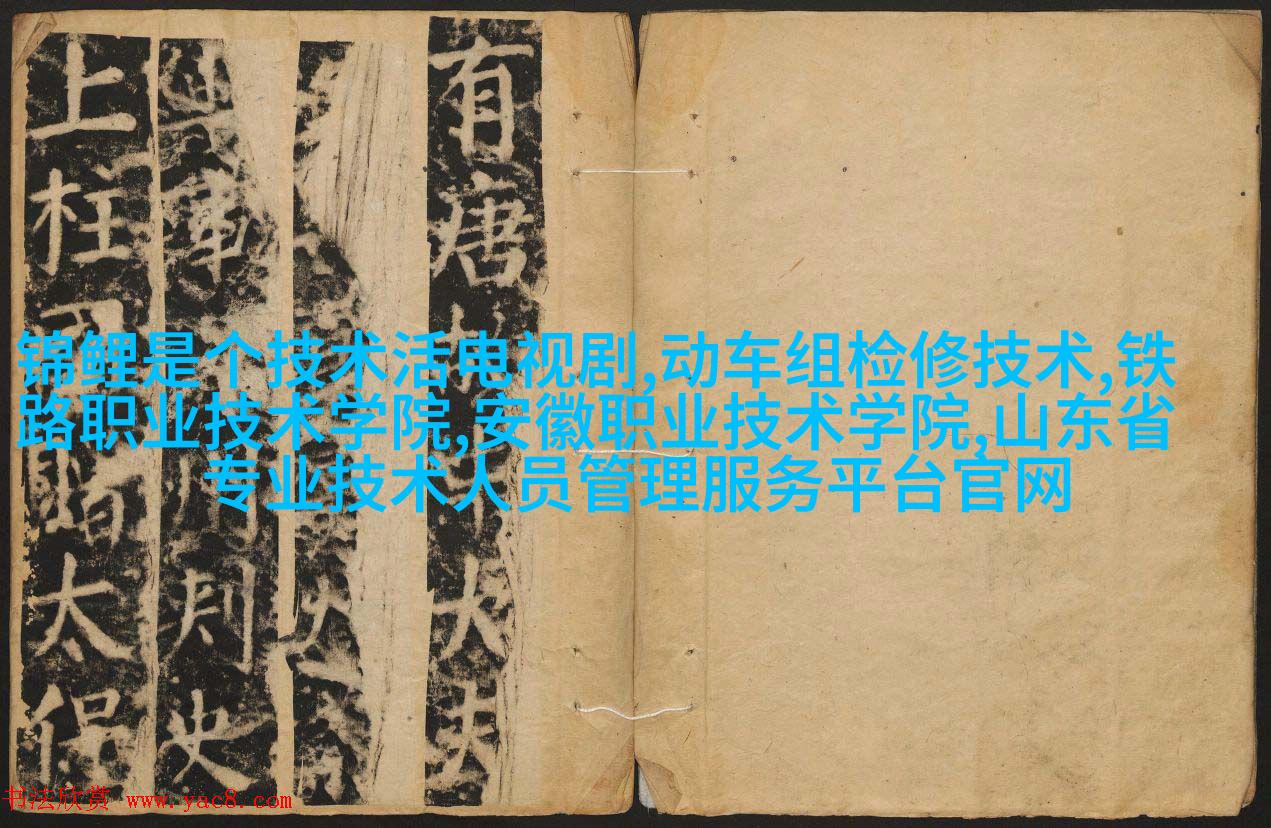 有唐大夫
軍刺史
上柱太保
锦鲤是个技术活电视剧,动车组检修技术,铁
路职业技术学院,安徽职业技术学院,山东省
专业技术人员管理服务平台官网
书法欣赏 www.yac8.com